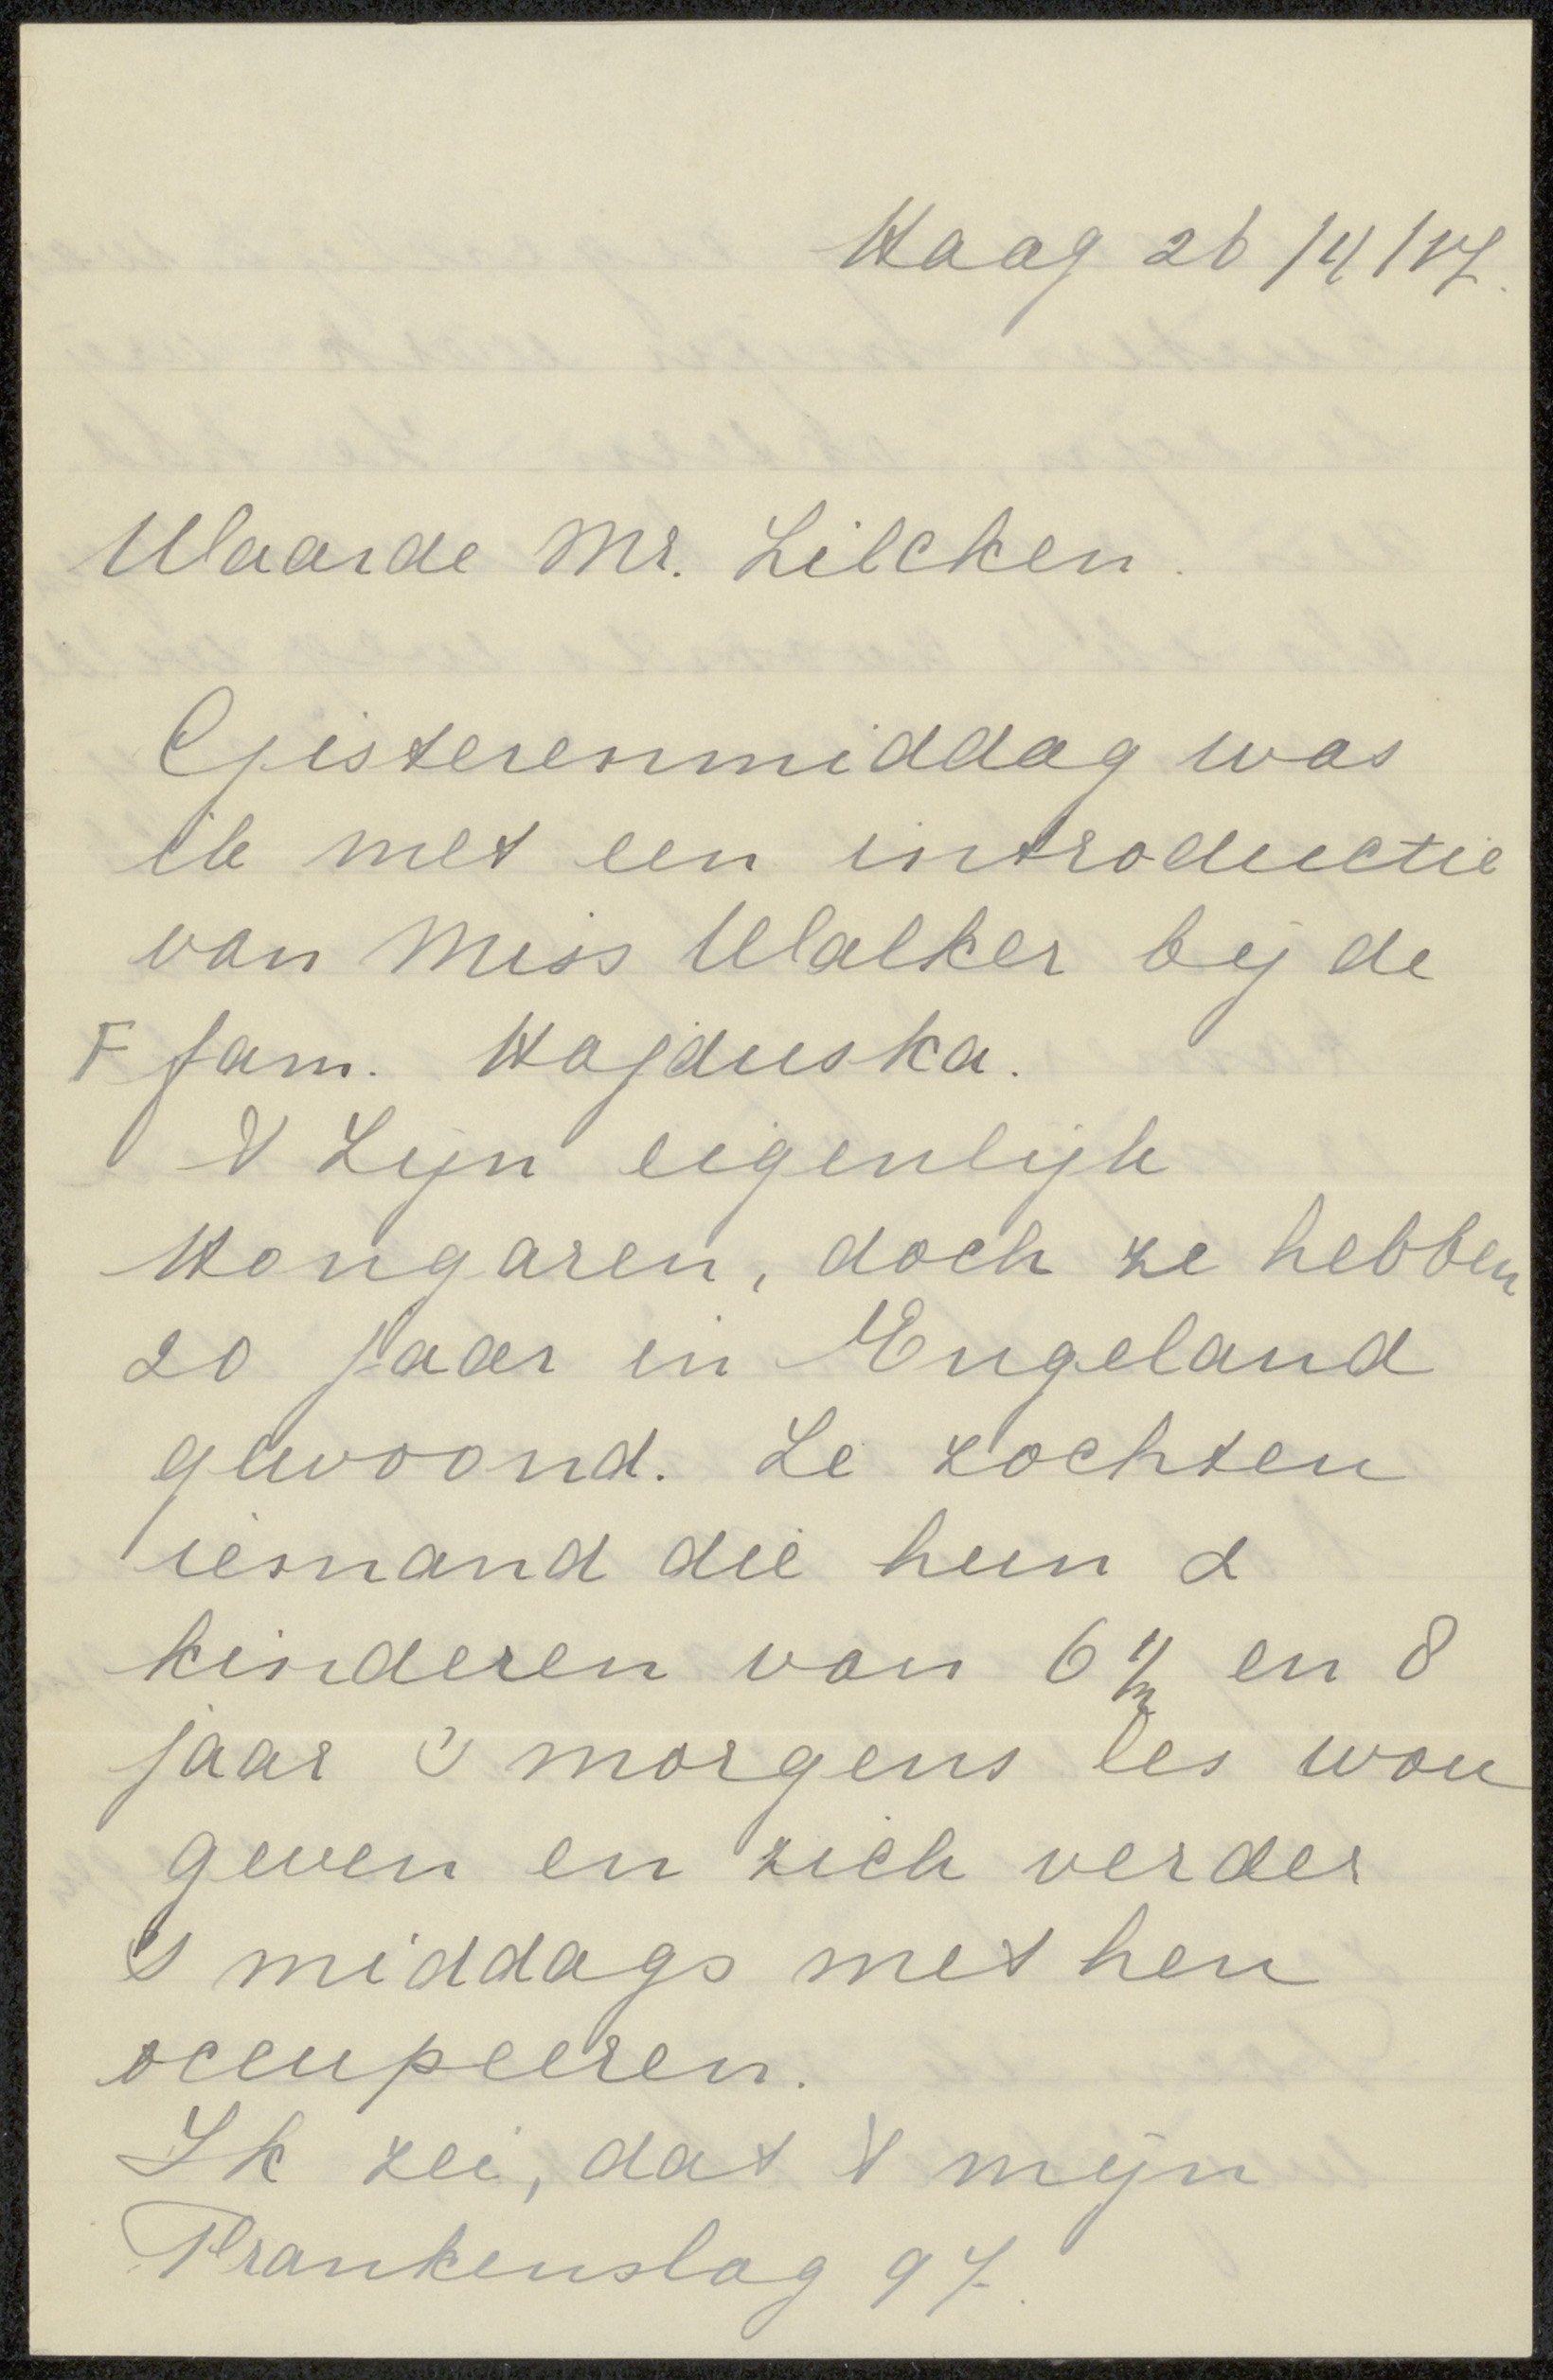 Haag 26/4/17.
Waarde Mr. Zilcken.
Gisterenmiddag was
ik met een introductie
van Miss Walker bij de
F fam. Hajduska.
't Zijn eigenlijk
Hongaren, doch ze hebben
20 jaar in Engeland
gewoond. Ze zochten
iemand die hun 2
kinderen van 6 1/2 en 8
jaar 's morgens les wou
geven en zich verder
's middags met hen
occupeeren.
Ik zei, dat 't mijn
Frankenslag 97.